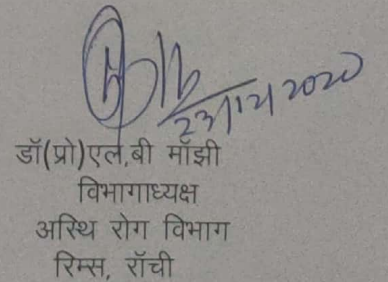 23/12/2020
डॉ(प्रो)एल,बी मॉझी
विभागाध्यक्ष
अस्थि रोग विभाग
रिम्स, रॉची